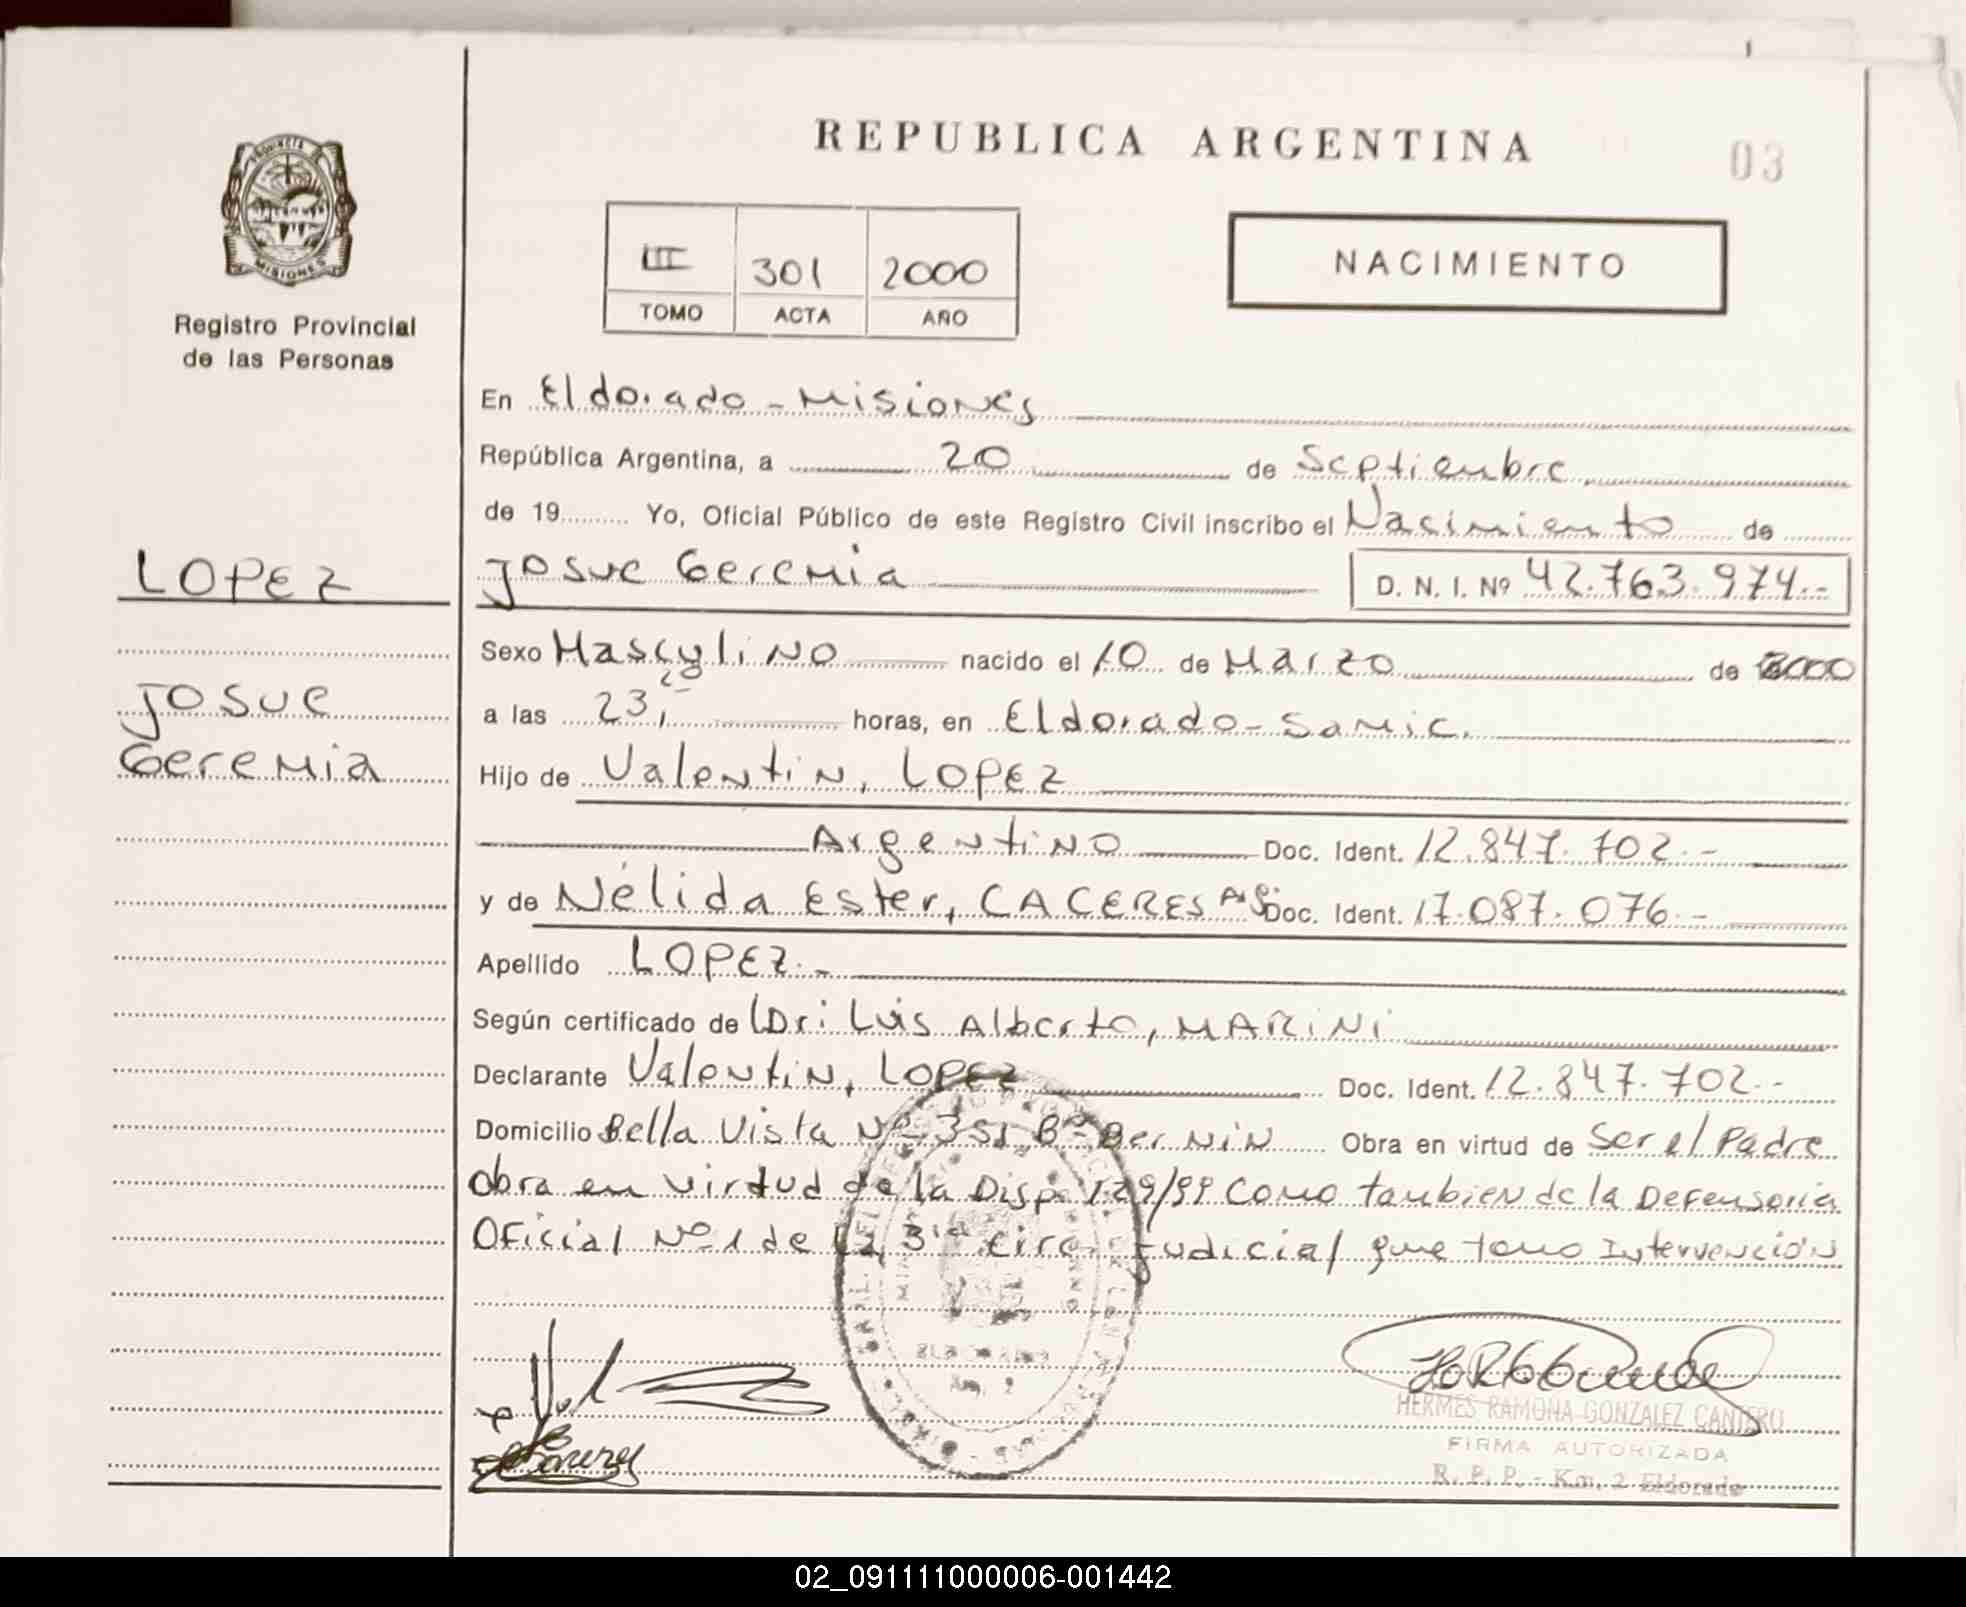 REPUBLICA ARGENTINA
03
PROVINCIA
MISIONES
Registro Provincial
de las Personas
III 301 2000
TOMO ACTA AÑO
NACIMIENTO
En Eldorado - Misiones
República Argentina, a 20 de Septiembre
de 19 Yo, Oficial Público de este Registro Civil inscribo el Nacimiento de
LOPEZ
Josue Geremia D. N. I. Nº 42.763.974.-
Sexo Masculino nacido el 10 de Marzo de 2000
Josue
Geremia
a las 23, horas, en Eldorado - Samic.
Hijo de Valentin, LOPEZ
Argentino Doc. Ident. 12.847.702.-
y de Nélida Ester, CACERES Doc. Ident. 17.087.076.-
Apellido LOPEZ.-
Según certificado de Dr: Luis Alberto, MARINI
Declarante Valentin, LOPEZ Doc. Ident. 12.847.702.-
Domicilio Bella Vista Nº 351 Bº Bernin Obra en virtud de Ser el Padre
Obra en virtud de la Disp. 129/99 Como tambien de la Defensoria
Oficial Nº 1 de la 3ra circ. Judicial que tomo Intervención
ELDORADO
Km. 2
HERMES RAMONA GONZALEZ CANTERO
FIRMA AUTORIZADA
R. P. P. - Km. 2 Eldorado
02_091111000006-001442